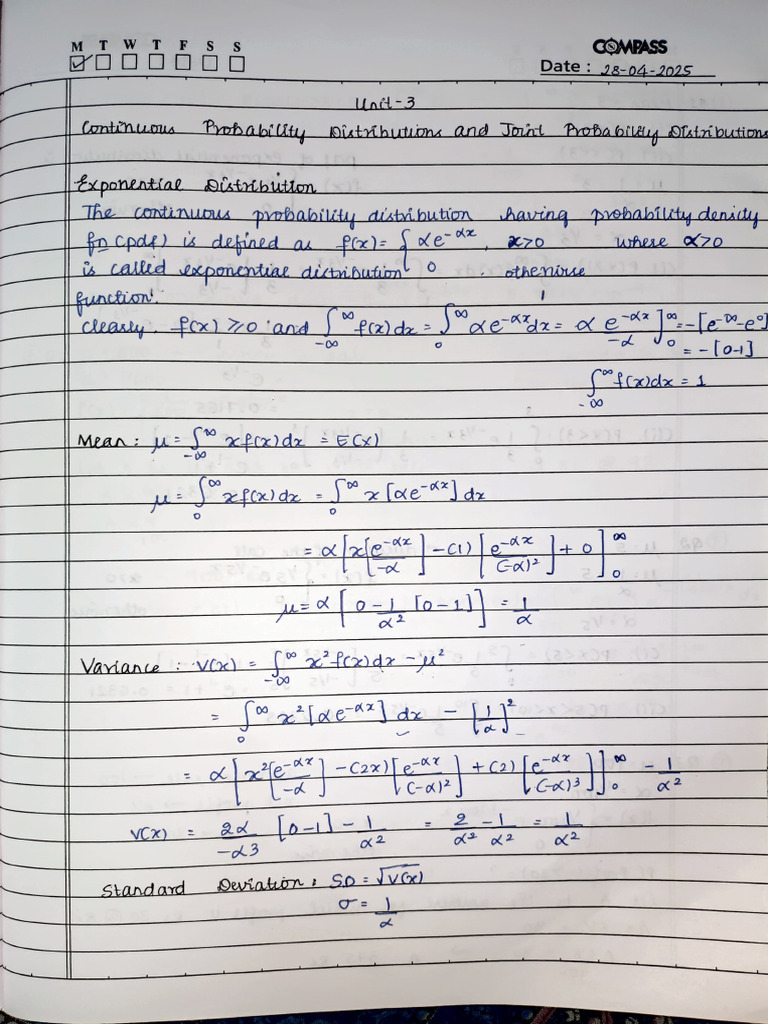 M T W T F S S
COMPASS
Date : 28-04-2025
Unit-3
Continuous Probability Distributions and Joint Probability Distributions
Exponential Distribution
The continuous probability distribution having probability density
fn (pdf) is defined as f(x) = { αe^{-αx}, x>0 where α>0
is called exponential distribution { 0 . otherwise
function.
Clearly. f(x) ≥ 0 and ∫_{-∞}^{∞} f(x) dx = ∫_0^∞ αe^{-αx} dx = α e^{-αx}/-α ]_0^∞ = -[e^{-∞} - e^0]
= -[0-1]
∫_{-∞}^{∞} f(x) dx = 1
Mean : μ = ∫_{-∞}^{∞} x f(x) dx = E(x)
μ = ∫_0^∞ x f(x) dx = ∫_0^∞ x [αe^{-αx}] dx
= α [ x [e^{-αx}/-α] - (1) [e^{-αx}/(-α)²] + 0 ]_0^∞
μ = α [ 0 - 1/α² [0-1] ] = 1/α
Variance : V(x) = ∫_{-∞}^{∞} x² f(x) dx - μ²
= ∫_0^∞ x² [αe^{-αx}] dx - [1/α]²
= α [ x² [e^{-αx}/-α] - (2x) [e^{-αx}/(-α)²] + (2) [e^{-αx}/(-α)³] ]_0^∞ - 1/α²
V(x) = 2α/-α³ [0-1] - 1/α² = 2/α² - 1/α² = 1/α²
Standard Deviation : S.D = √V(x)
σ = 1/α